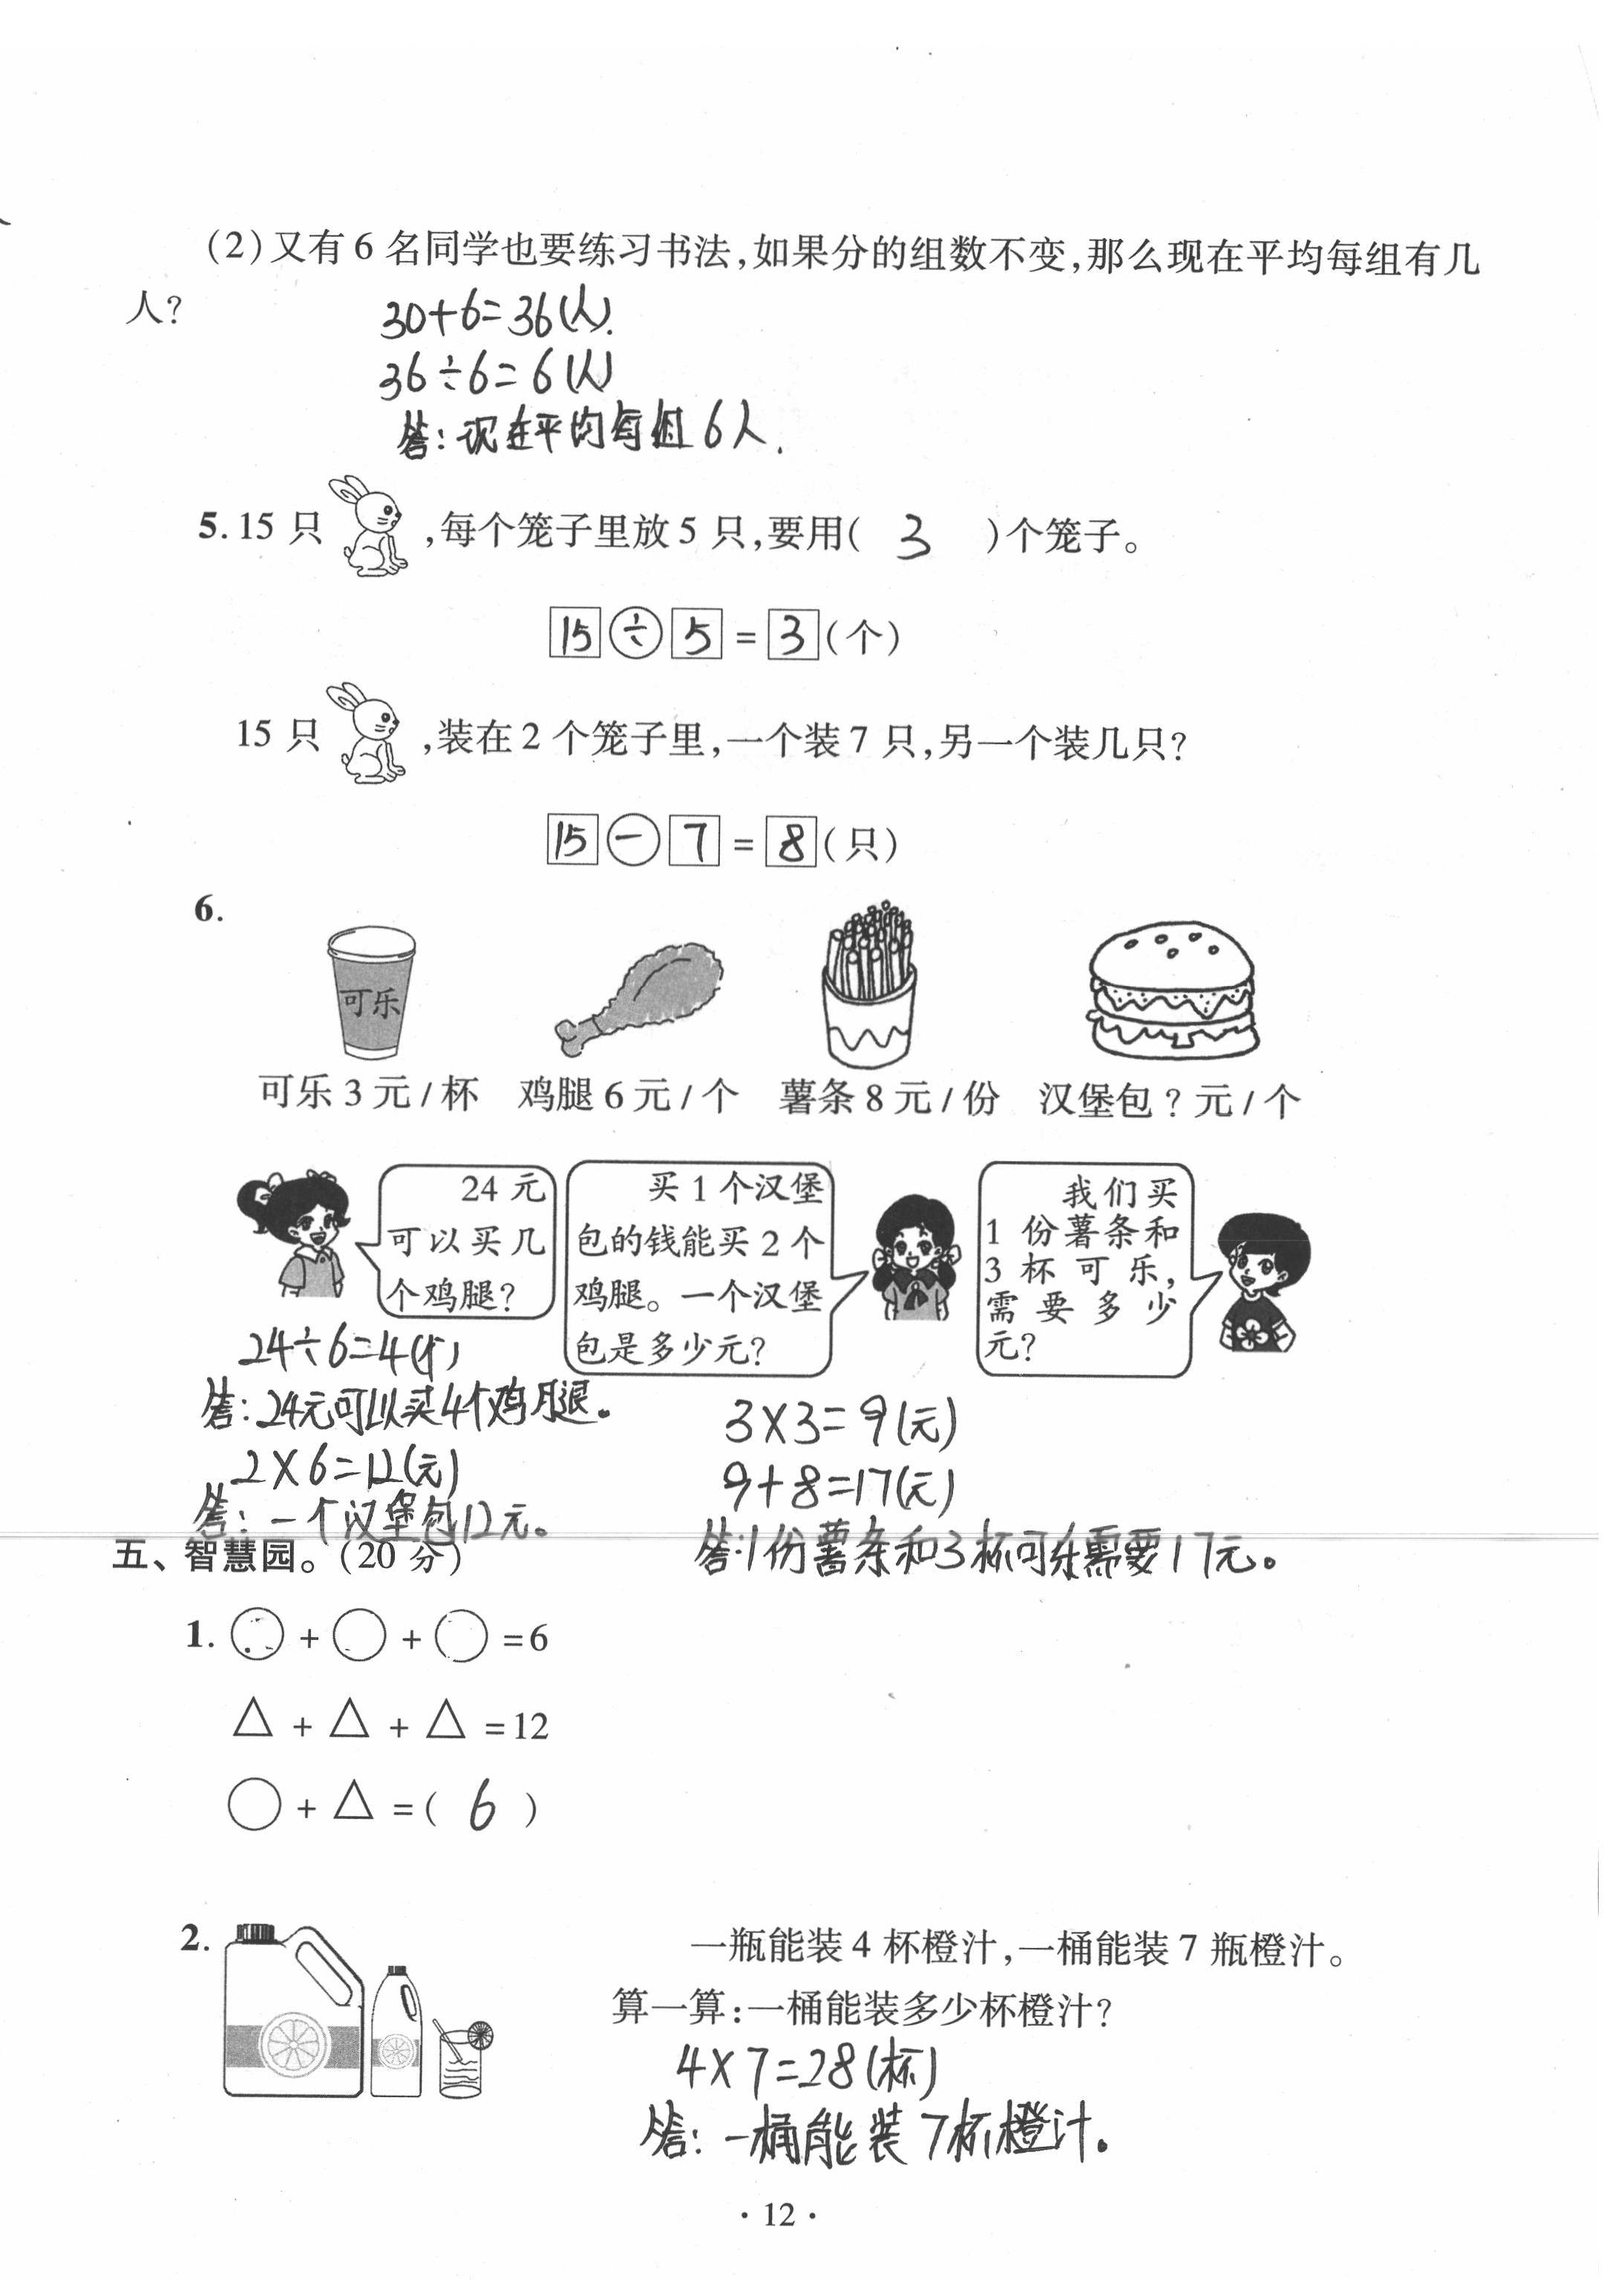 (2)又有6名同学也要练习书法,如果分的组数不变,那么现在平均每组有几
人?
30+6=36(人).
36÷6=6(人)
答:现在平均每组6人.
5.15只,每个笼子里放5只,要用( 3 )个笼子。
15÷5=3(个)
15只,装在2个笼子里,一个装7只,另一个装几只?
15-7=8(只)
6.
可乐
可乐3元/杯 鸡腿6元/个 薯条8元/份 汉堡包?元/个
24元
可以买几
个鸡腿?
买1个汉堡
包的钱能买2个
鸡腿。一个汉堡
包是多少元?
我们买
1份薯条和
3杯可乐,
需要多少
元?
24÷6=4(个)
答:24元可以买4个鸡腿。
2×6=12(元)
答:一个汉堡包12元。
3×3=9(元)
9+8=17(元)
答:1份薯条和3杯可乐需要17元。
五、智慧园。(20分)
1.○+○+○=6
△+△+△=12
○+△=( 6 )
2.
一瓶能装4杯橙汁,一桶能装7瓶橙汁。
算一算:一桶能装多少杯橙汁?
4×7=28(杯)
答:一桶能装7杯橙汁。
·12·